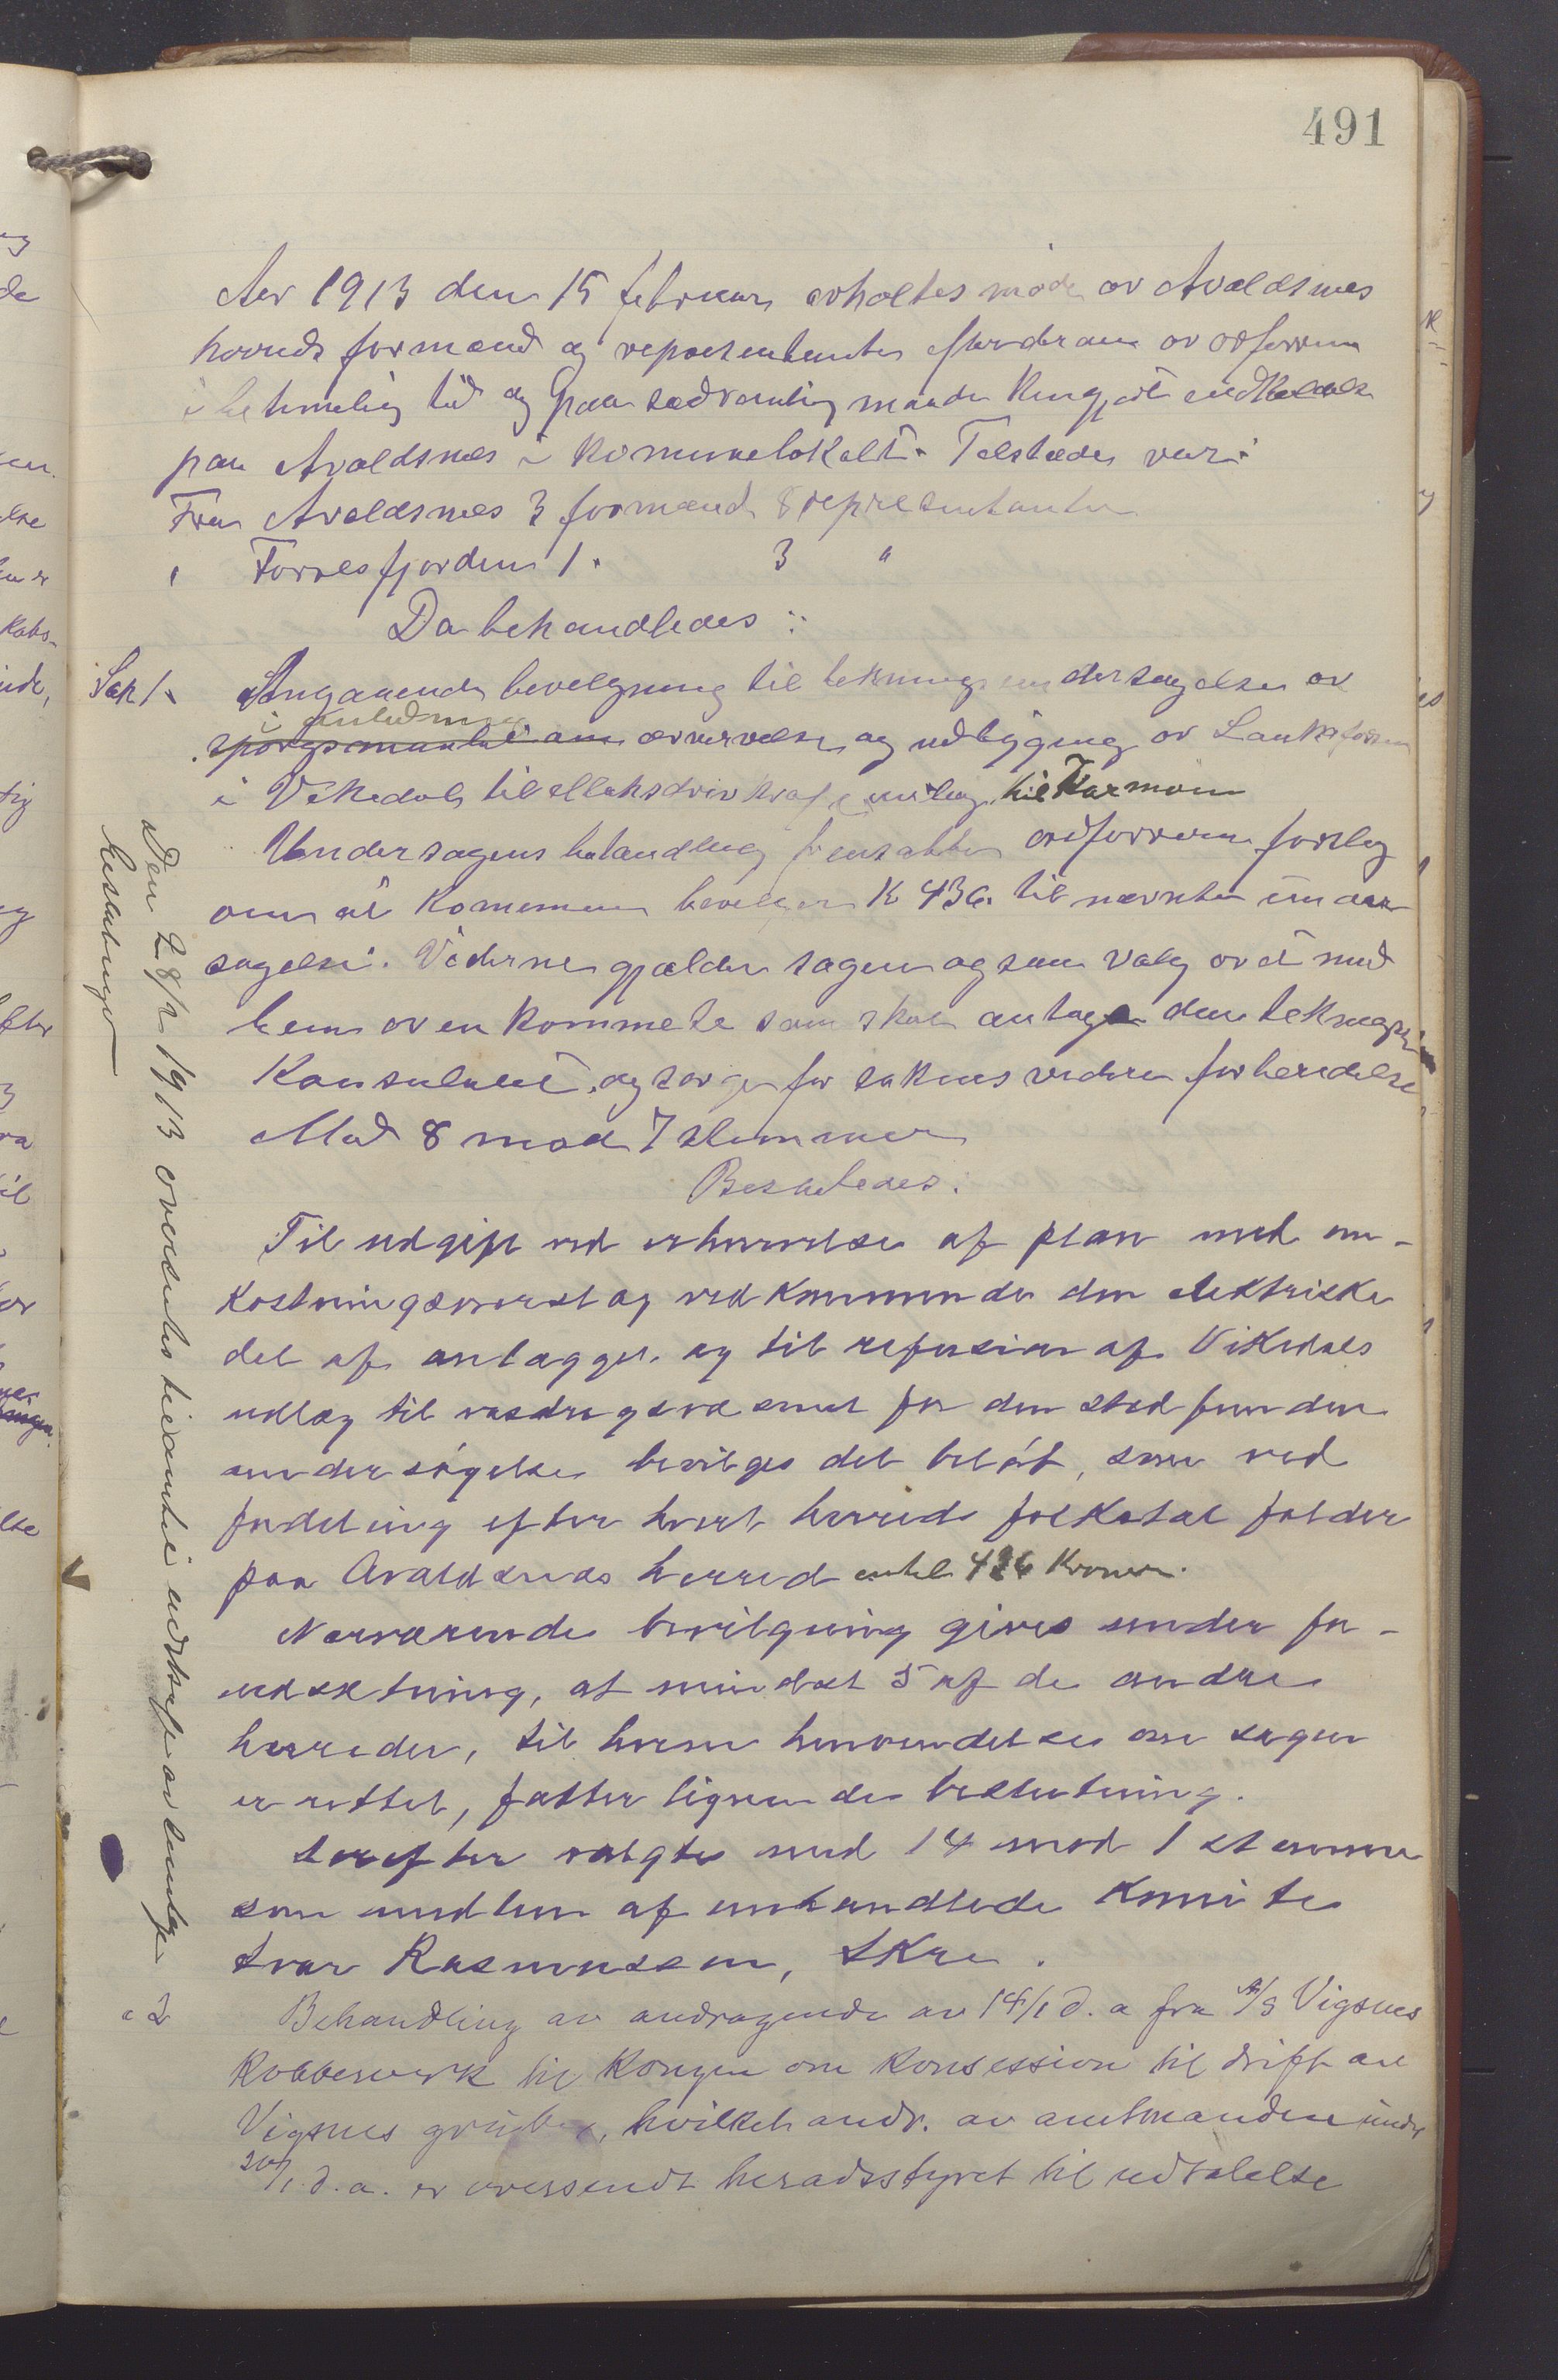 491
Aar 1913 den 15 februar avholtes møde av Avaldsnes
herreds formænd og representanter efter der av ordføreren
i betimelig tid og paa sædvanlig maade kungjort indkaldelse
paa Avaldsnes i Komunelokalet. Tilstede var:
Fra Avaldsnes 3 formænd 8 representanter
" Førresfjorden 1. 3 "
Da behandledes:
Sak 1. Angaaende bevelgning til tekning undersøgelse av
i anledning
spørgsmaalet om ærvervelse og udbygging av Lankafossen
i Vikedal til ellektrisk drivkraft anlæg til Karmøen
Under sagens behandling fremsatte ordføreren forslag
om at Komunen bevelger K 436 til nævnte under
søgelse. Viderne gjælder sagen ogsaa valg av et med
lem av en Kommete som skal antage den tekniske
Konsulent og sørge for sakens videre forberedelse
Med 8 mod 7 stemmer
Besluttedes:
Til udgift ved erhvervelse af plan med om-
kostningsoverslag vedkommende den elektriske
del af anlægget og til refusion af Vikedals
udlæg til vasdragsvæsenet for den stedfundne
undersøgelse bevilges det beløb, som ved
fordeling efter hvert herreds folketal falder
paa Avaldsnes herred intil 436 Kroner.
Nærværende bevilgning gives under for-
udsætning, at mindst 5 af de andre
herreder, til hvem henvendelse om sagen
er rettet, fatter lignende beslutning.
Derefter valgtes med 14 mod 1 stemme
som medlem af omhandlede Komite
Ivar Rasmussen, Skre.
" 2 Behandling av andragende av 14/1 d. a fra A/S Vigsnes
Kobberverk til Kongen om Konsession til drift av
Vigsnes gruber, hvilket andr. av amtmanden under
20/1 d. a. er oversendt heradsstyret til udtalelse
Den 28/2 1913 oversendtes teil amtet udskrift av omlagte
beslutninger